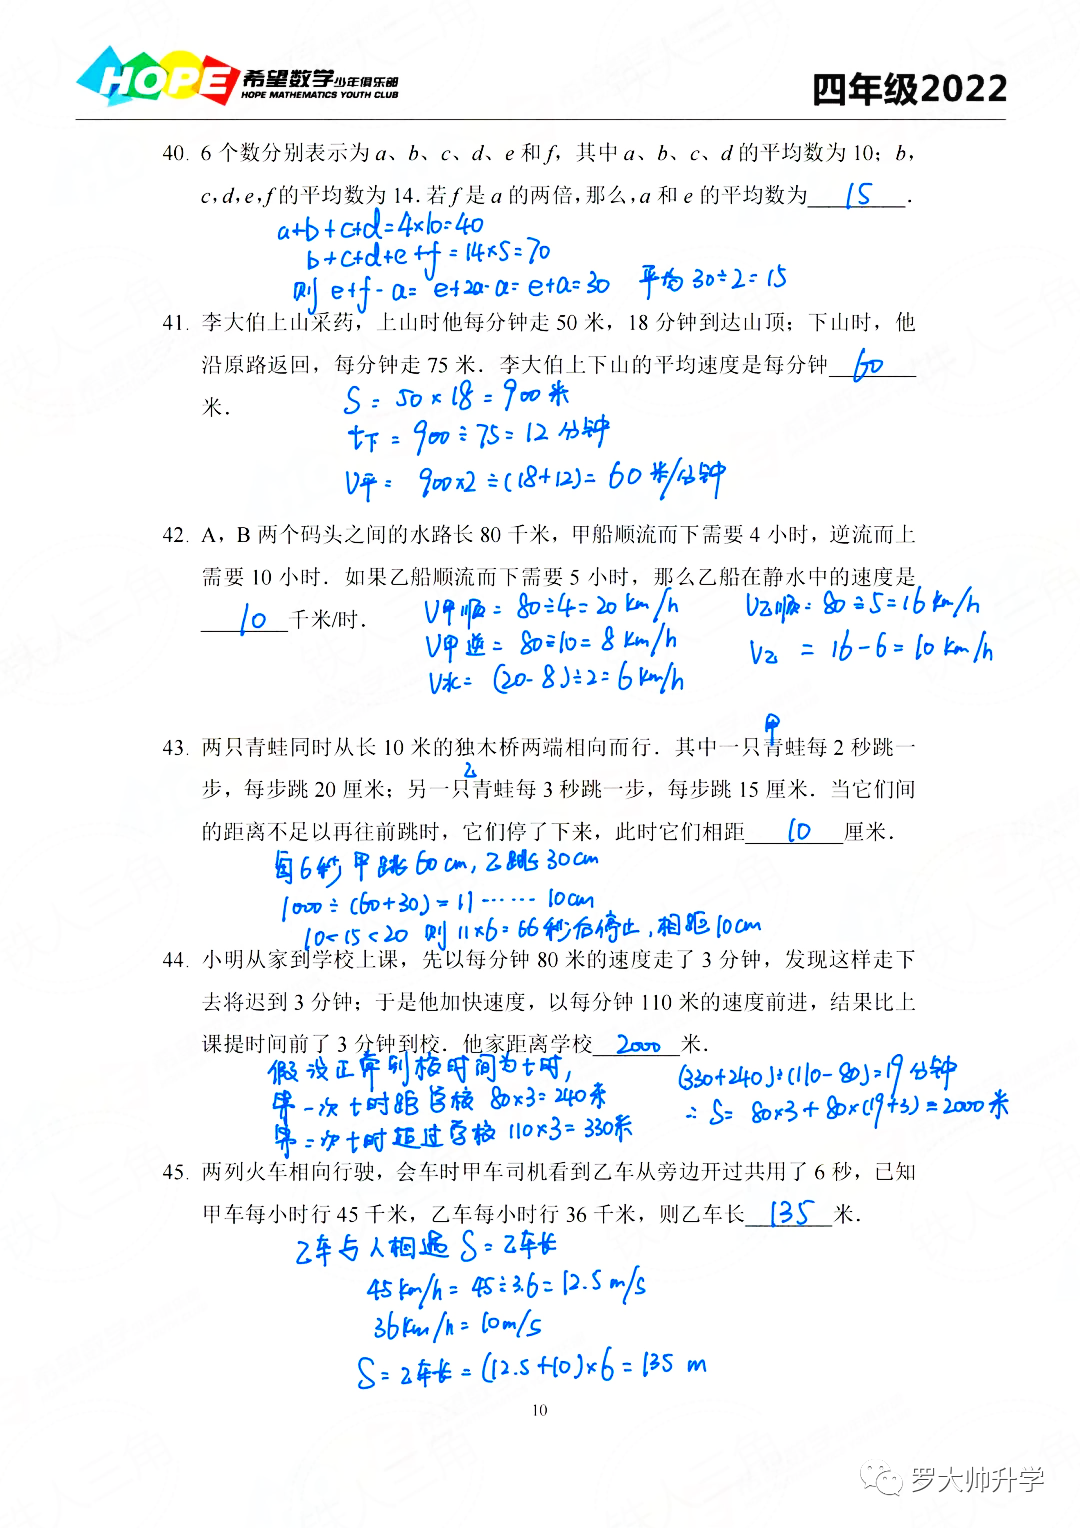 HOPE 希望数学少年俱乐部
HOPE MATHEMATICS YOUTH CLUB
四年级2022
40. 6 个数分别表示为 a、b、c、d、e 和 f，其中 a、b、c、d 的平均数为 10；b，
c，d，e，f 的平均数为 14．若 f 是 a 的两倍，那么，a 和 e 的平均数为 15 ．
a+b+c+d=4×10=40
b+c+d+e+f=14×5=70
则 e+f-a= e+2a-a= e+a=30 平均 30÷2=15
41. 李大伯上山采药，上山时他每分钟走 50 米，18 分钟到达山顶；下山时，他
沿原路返回，每分钟走 75 米．李大伯上下山的平均速度是每分钟 60
米．
S = 50×18=900米
t下 = 900÷75=12 分钟
V平= 900×2÷(18+12)= 60 米/分钟
42. A，B 两个码头之间的水路长 80 千米，甲船顺流而下需要 4 小时，逆流而上
需要 10 小时．如果乙船顺流而下需要 5 小时，那么乙船在静水中的速度是
10 千米/时．
V甲顺= 80÷4=20 km/h
V甲逆= 80÷10= 8 km/h
V水= (20-8)÷2=6km/h
V乙顺=80÷5=16km/h
V乙 = 16-6=10 km/h
甲
43. 两只青蛙同时从长 10 米的独木桥两端相向而行．其中一只青蛙每 2 秒跳一
乙
步，每步跳 20 厘米；另一只青蛙每 3 秒跳一步，每步跳 15 厘米．当它们间
的距离不足以再往前跳时，它们停了下来，此时它们相距 10 厘米．
每6秒 甲跳60cm，乙跳30cm
1000÷(60+30)=11……10cm
10<15<20 则 11×6=66秒后停止，相距10cm
44. 小明从家到学校上课，先以每分钟 80 米的速度走了 3 分钟，发现这样走下
去将迟到 3 分钟；于是他加快速度，以每分钟 110 米的速度前进，结果比上
课提时间前了 3 分钟到校．他家距离学校 2000 米．
假设正常到校时间为t时，
第一次 t时距学校 80×3=240米
第二次 t时超过学校 110×3=330米
(330+240)÷(110-80)=19分钟
∴ S= 80×3+80×(19+3)=2000米
45. 两列火车相向行驶，会车时甲车司机看到乙车从旁边开过共用了 6 秒，已知
甲车每小时行 45 千米，乙车每小时行 36 千米，则乙车长 135 米．
乙车与人相遇 S=乙车长
45km/h= 45÷3.6=12.5m/s
36km/h=10m/s
S=乙车长=(12.5+10)×6=135 m
10
罗大帅升学